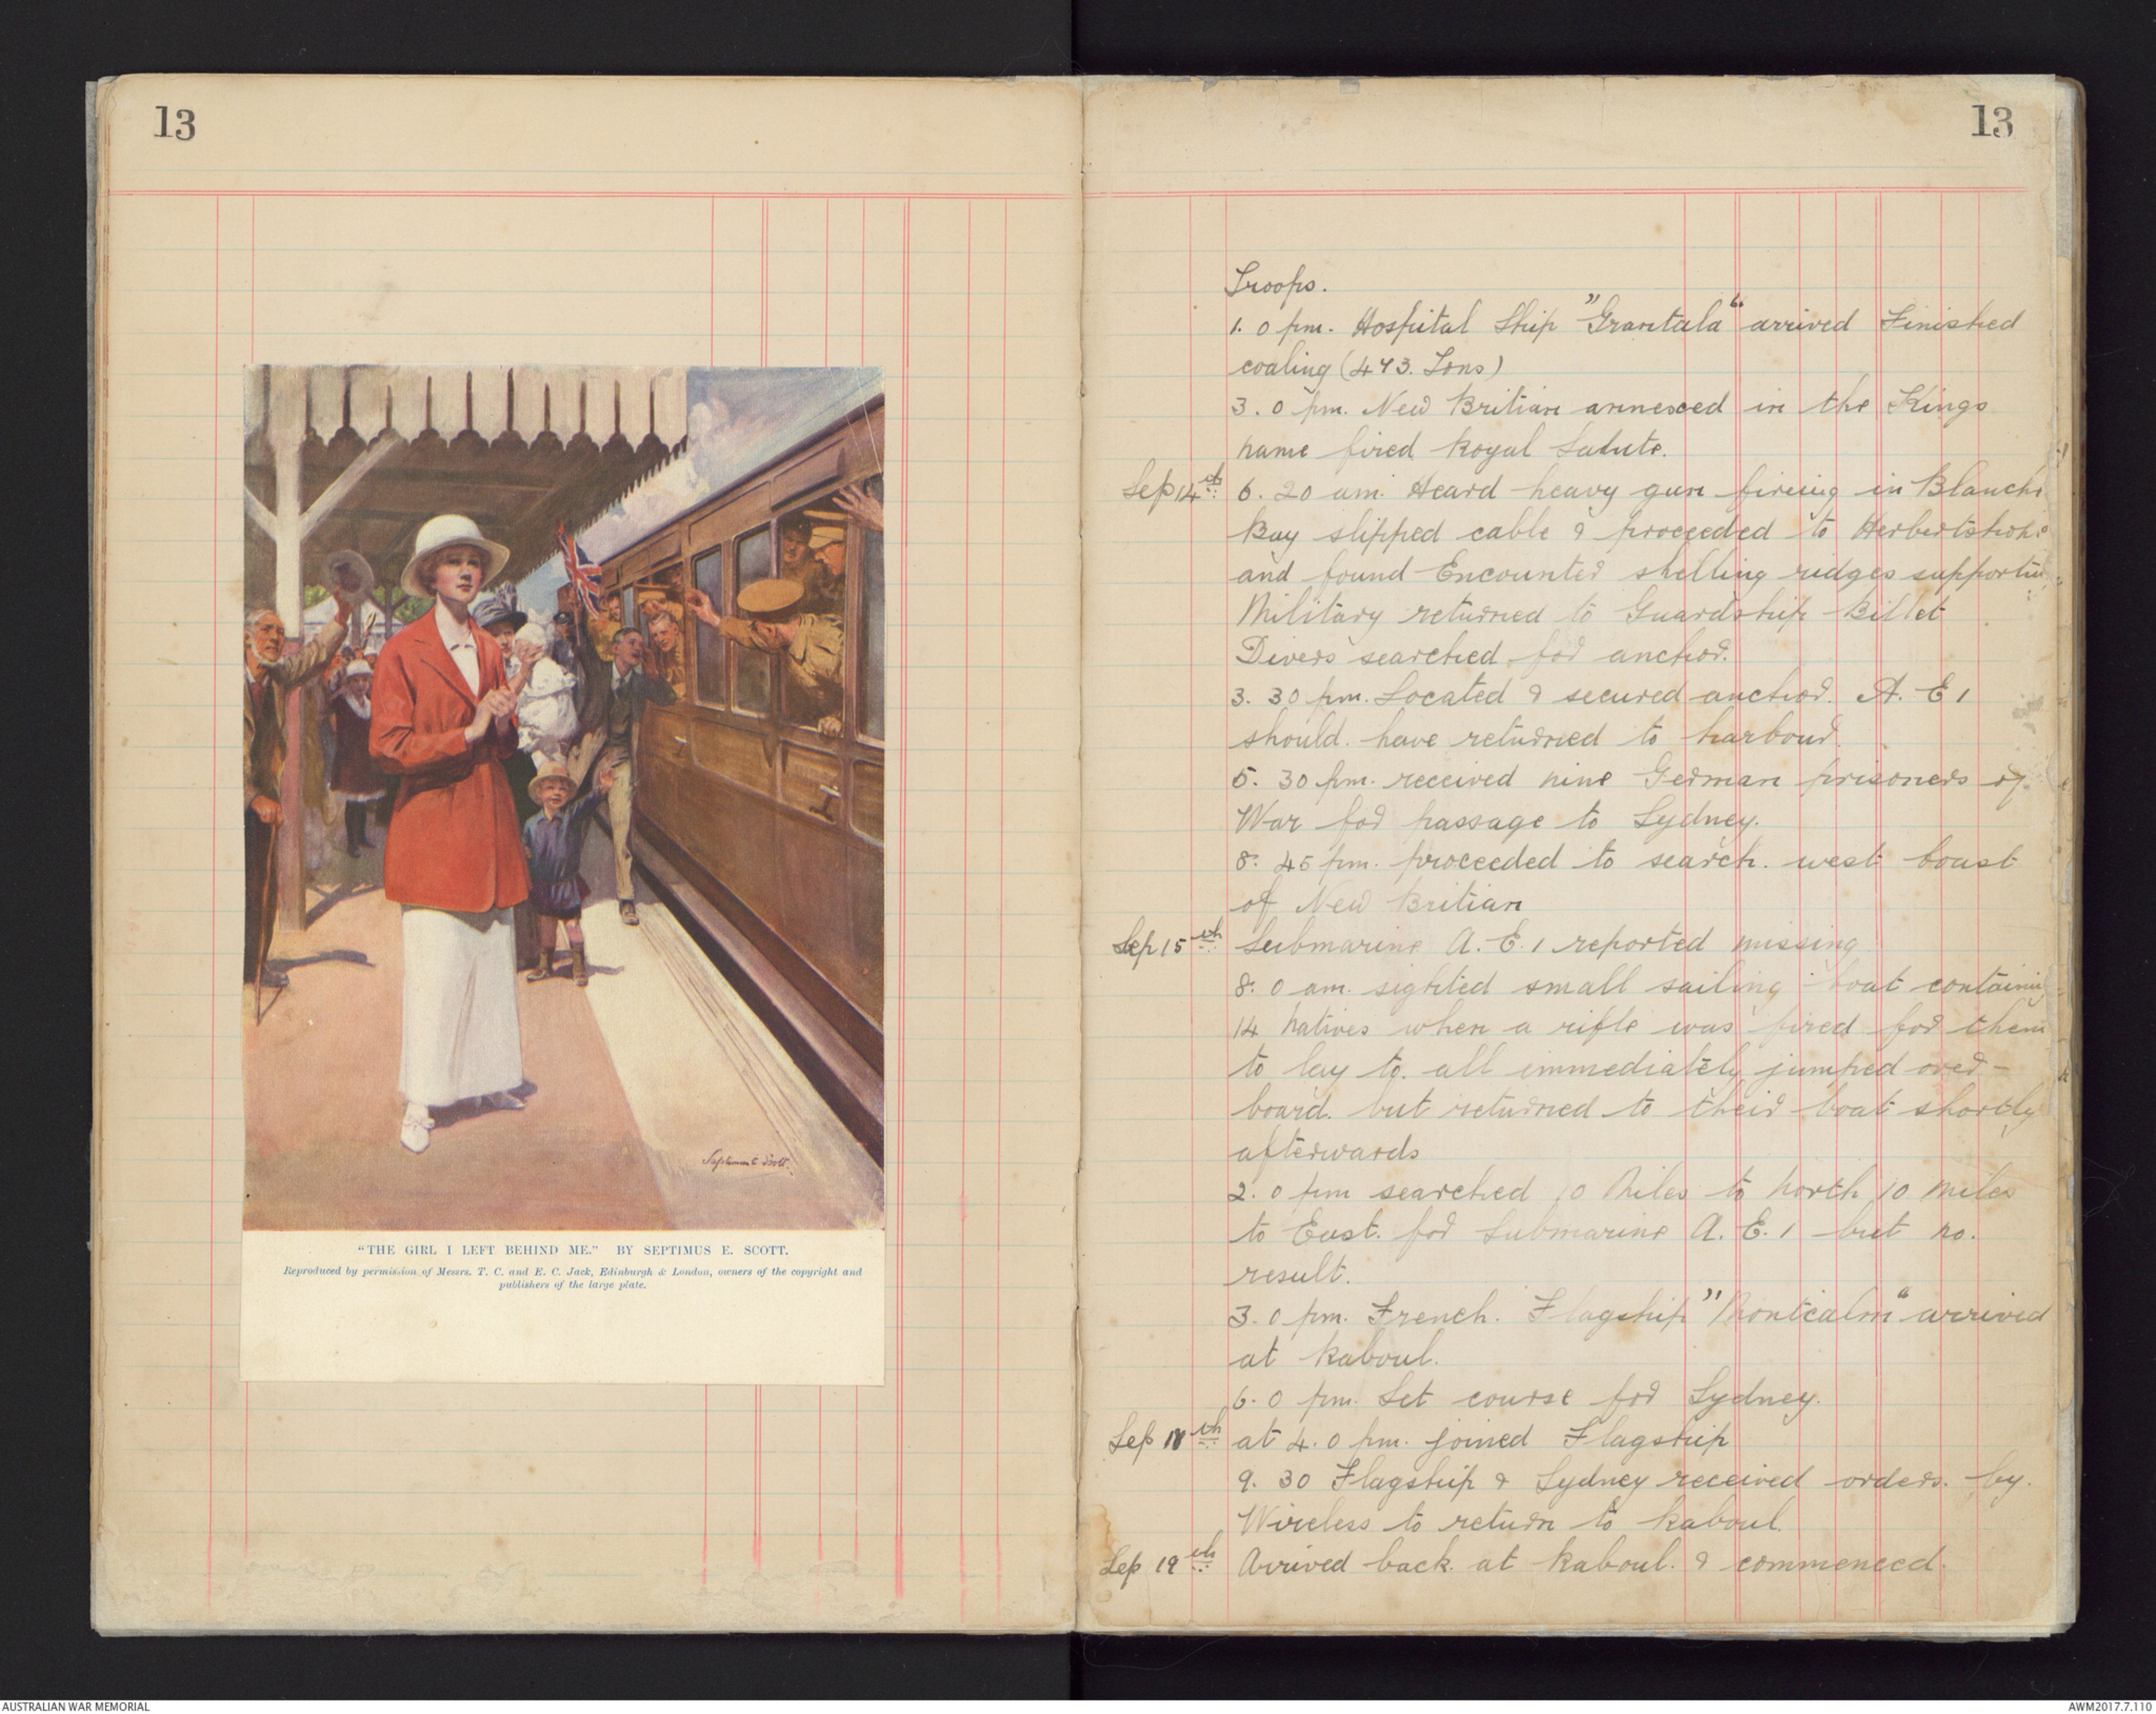 13
"THE GIRL I LEFT BEHIND ME." BY SEPTIMUS E. SCOTT.
Reproduced by permission of Messrs. T. C. and E. C. Jack, Edinburgh & London, owners of the copyright and
publishers of the large plate.
13
Troops.
1. 0 pm. Hospital Ship "Grantala" arrived Finished
coaling (473. Tons)
3. 0 pm. New Britian annexed in the Kings
name fired Royal Salute.
Sep 14th 6. 20 am. Heard heavy gun fireing in Blanche
Bay slipped cable & proceeded to Herbertshohe
and found Encounter shelling ridges supportin
Military returned to Guardship Billet
Divers searched for anchor.
3. 30 pm. Located & secured anchor. A. E 1
should. have returned to harbour.
5. 30 pm. received nine German prisoners of
War for passage to Sydney.
8. 45 pm. proceeded to search. west Coast
of New Britian
Sep 15th Submarine A. E. 1 reported missing
8. 0 am. sighted small sailing boat containing
14 Natives when a rifle was fired for them
to lay to. all immediately jumped over-
board. but returned to their boat shortly
afterwards
2. 0 pm searched 10 Miles to North 10 miles
to East. for Submarine A. E. 1 but no.
result.
3. 0 pm. French. Flagship "Montcalm" arrived
at Raboul.
6. 0 pm. Set course for Sydney.
Sep 18th at 4. 0 pm. joined Flagship
9. 30 Flagship & Sydney received orders. by.
Wireless to return to Raboul.
Sep 19th Arrived back. at Raboul. & commenced.
AUSTRALIAN WAR MEMORIAL
AWM2017.7.110